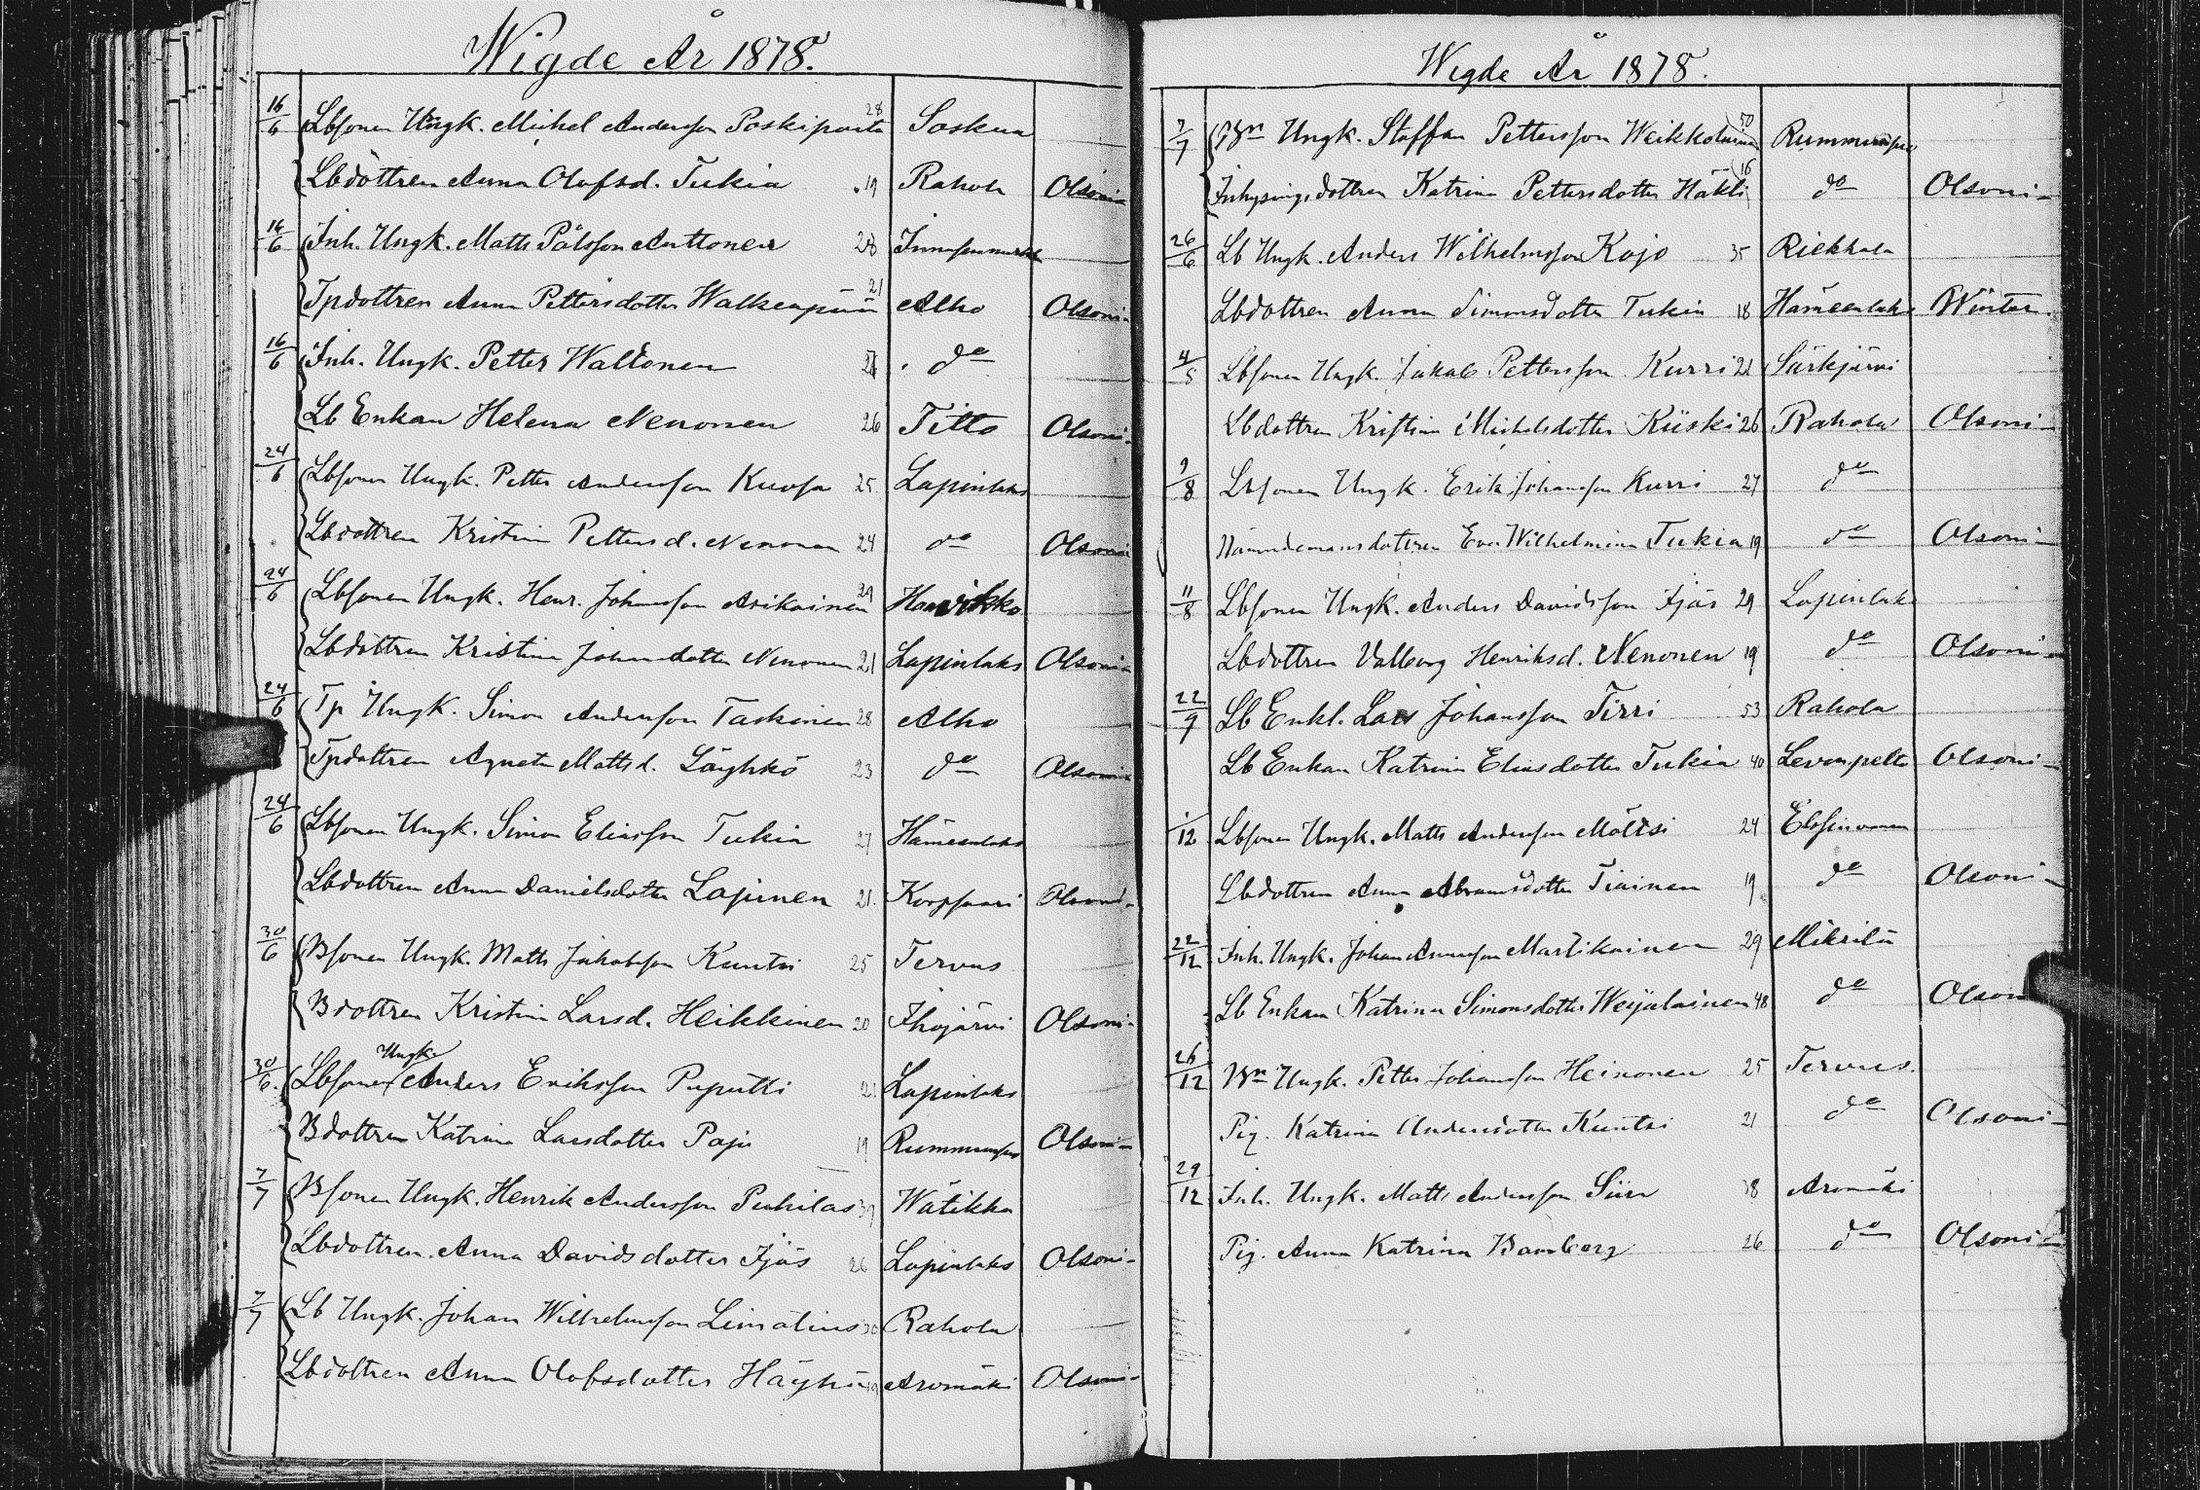 Wigde År 1878.
16/6 Lbsonen Ungk. Michel Andersson Poskiparta 28 Soskua
Lbdottren Anna Olofsd. Tukia 19 Rahola Olsoni
16/6 Inh. Ungk. Matts Pålsson Anttonen 28
Tpdottren Anna Pettersdotter Walkeapää 21 Alho Olsoni
16/6 Inh. Ungk. Petter Waltonen do
Lb Enkan Helena Nenonen 26 Titto Olsoni
24/6 Lbsonen Ungk. Petter Andersson Kuosa 25 Lapinlaks
Lbdottren Kristina Pettersd. Nenonen 24 do Olsoni
24/6 Lbsonen Ungk. Henr. Johansson Asikainen 29
Lbdottren Kristina Johansdotter Nenonen 21 Lapinlaks Olsoni
24/6 Tp Ungk. Simon Andersson Taskinen 28 Alho
Tpdottren Agneta Mattsd. Läyhkö 23 do Olsoni
24/6 Lbsonen Ungk. Simon Eliasson Tukia 27 Hämeenlaks
Lbdottren Anna Danielsdotter Lajunen 21 Korpsaari Olsoni
30/6 Bsonen Ungk. Matts Jakobsson Kuntsi 25 Tervus
Bdottren Kristina Larsd. Heikkinen 20 Ihojärvi Olsoni
30/6 Lbsonen Ungk. Anders Eriksson Puputti Lapinlaks
Bdottren Katrina Larsdotter Paju 19 Rummunsuo Olsoni
7/7 Bsonen Ungk. Henrik Andersson Puhilas 39 Wätikkä
Lbdottren Anna Davidsdotter Äjäs 26 Lapinlaks Olsoni
7/7 Lb Ungk. Johan Wilhelmsson Limatius 30 Rahola
Lbdottren Anna Olofsdotter Häyhä Aromäki Olsoni
Wigde År 1878.
7/7 Ungk. Staffan Pettersson Weikkolainen 50 Rummunsuo
Inhysingsdottren Katrina Pettersdotter Häkli 16 do Olsoni
26/6 Lb Ungk. Anders Wilhelmsson Kojo 35 Riekkala
Lbdottren Anna Simonsdotter Tukia 18 Hämeenlaks Winter
4/5 Lbsonen Ungk. Jakob Pettersson Kurri 21 Särkjärvi
Lbdottren Kristina Michelsdotter Kiiski 26 Rahola Olsoni
9/8 Lbsonen Ungk. Erik Johansson Kurri 27 do
Nämndemansdottren Eva Wilhelmina Tukia 19 do Olsoni
11/8 Lbsonen Ungk. Anders Davidsson Äjäs 29 Lapinlaks
Lbdottren Valborg Henriksd. Nenonen 19 do Olsoni
22/9 Lb Enkl. Lars Johansson Tirri 53 Rahola
Lb Enkan Katrina Eliasdotter Tukia 40 Levonpelto Olsoni
1/12 Lbsonen Ungk. Matts Andersson Möttsi 24
Lbdottren Anna Abramsdotter Tiainen 19 do Olsoni
22/12 Inh. Ungk. Johan Martikainen 29 Mikrilä
Lb Enkan Katrina Simonsdotter Weijalainen 48 do Olsoni
26/12 Bn Ungk. Petter Johansson Heinonen 25 Tervus.
Pig. Katrina Andersdotter Kuntsi 21 do Olsoni
29/12 Inh. Ungk. Matts Andersson Aromäki
Pig. Anna Katrina Bamberg 26 do Olsoni